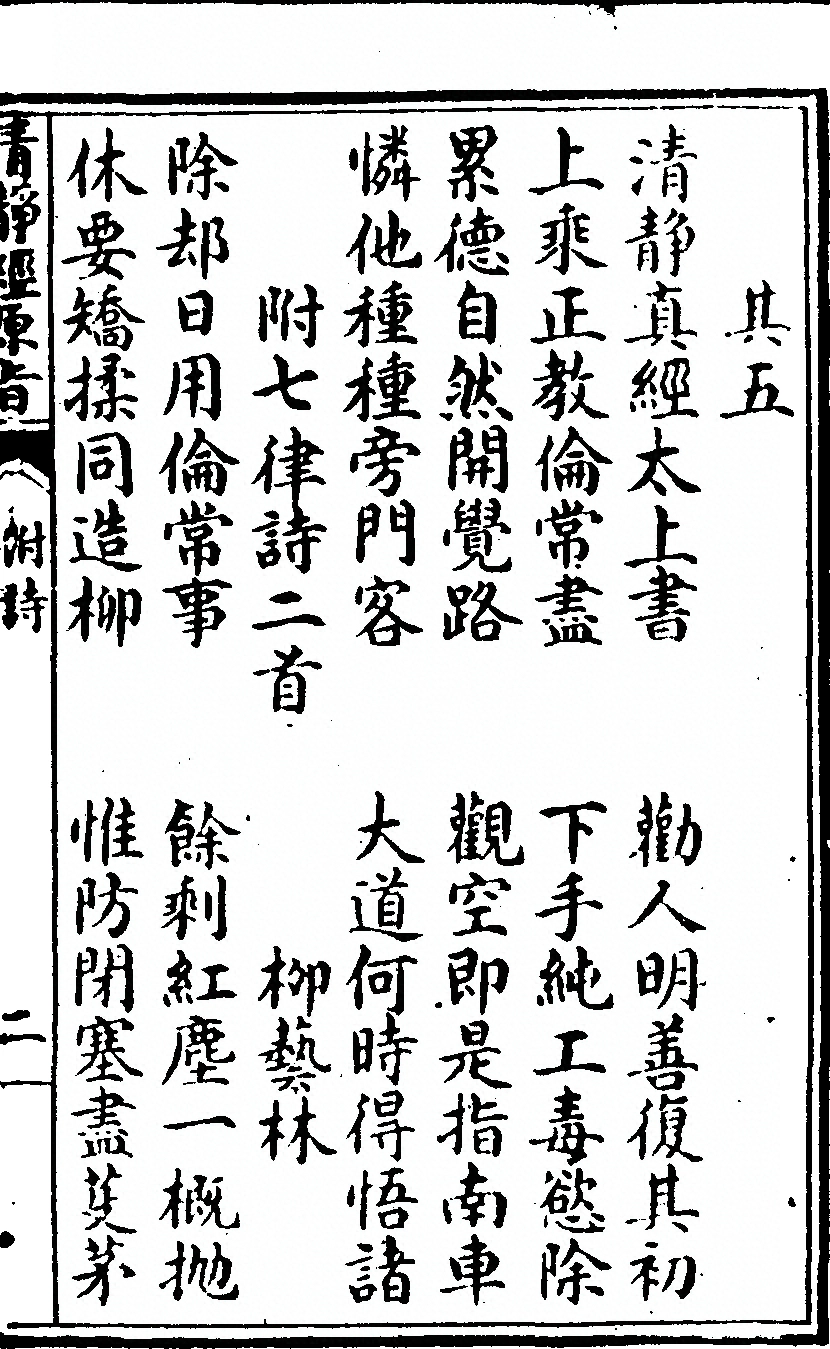 其五
清靜真經太上書　勸人明善復其初
上乘正教倫常盡　下手純工毒慾除
累德自然開覺路　觀空即是指南車
憐他種種旁門客　大道何時得悟諸
附七律詩二首　柳藝林
除却日用倫常事　餘剩紅塵一概拋
休要矯揉同造柳　惟防閉塞盡茅
清靜經原旨　附詩　二